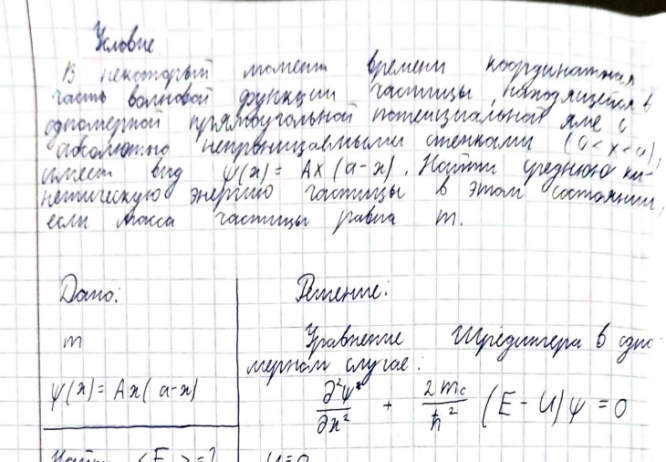 Условие
В некоторый момент времени координатная
часть волновой функции частицы, находящейся в
одномерной прямоугольной потенциальной яме с
абсолютно непроницаемыми стенками (0 < x < a),
имеет вид ψ(x) = Ax(a-x). Найти среднюю ки-
нетическую энергию частицы в этом состоянии,
если масса частицы равна m.
Дано:
m
ψ(x) = Ax(a-x)
Решение:
Уравнение Шредингера в одно
мерном случае:
∂²ψ/∂x² + 2m/ħ² (E - U)ψ = 0
Найти <E >=?
U=0